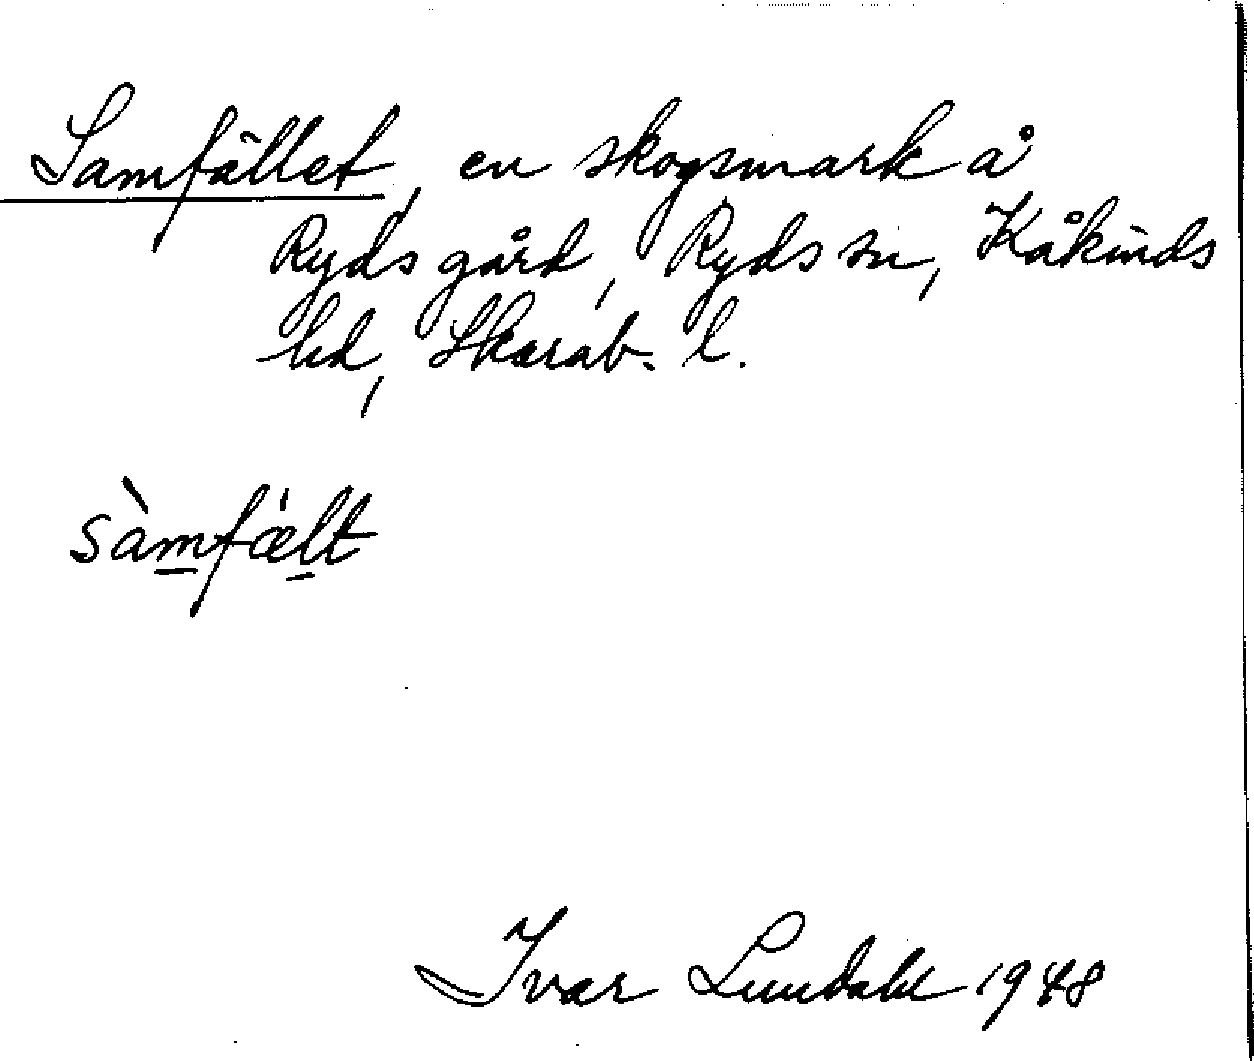 Samfället, en skogsmark å
Ryds gård, Ryds sn, Kåkinds
hd, Skarab. l.
sàmfǽlt
Ivar Lundahl 1948